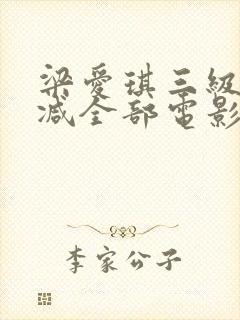 梁愛琪三級
減全部電影
李家公子